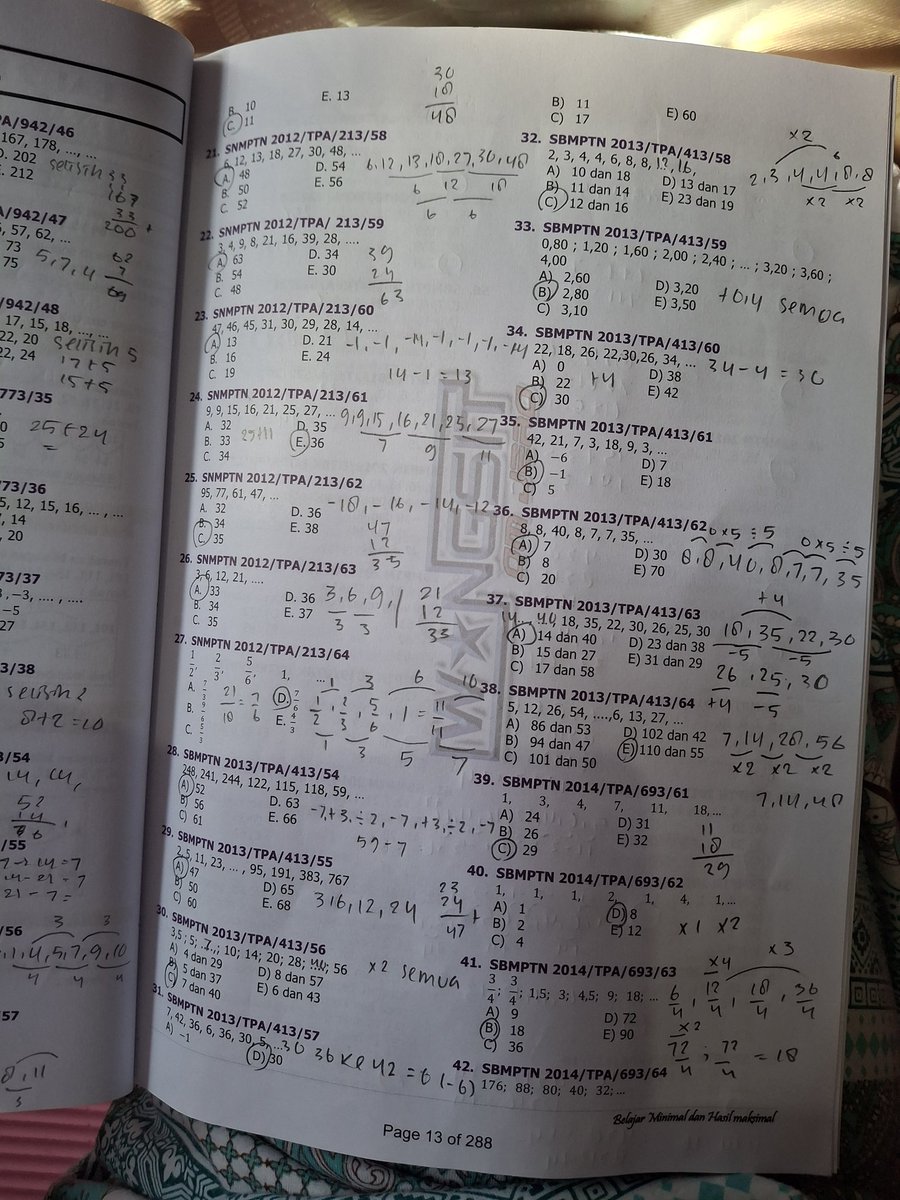 PA/942/46
167, 178, ..., ...
D. 202
E. 212
selisih 33
167
33
200 +
A/942/47
, 57, 62, ...
73
75
5, 7, 4
62
7
69
/942/48
17, 15, 18, ..., ...
22, 20
22, 24
selisih 5
17+5
15+5
773/35
25 + 24
=
773/36
5, 12, 15, 16, ... , ...
, 14
, 20
73/37
, -3, .... , ....
-5
27
3/38
selisih 2
8+2=10
3/54
14, 14,
52
14
/55
14 = 7
21 - 7 =
/56
3 3
1, 4, 5, 7, 9, 10
4 4 4
/57
8, 11
3
B. 10
E. 13
C. 11
30
18
48
21. SNMPTN 2012/TPA/213/58
6, 12, 13, 18, 27, 30, 48, ...
A. 48
D. 54
B. 50
E. 56
C. 52
6, 12, 13, 18, 27, 30, 48
6 12 18
6 6
22. SNMPTN 2012/TPA/ 213/59
3, 4, 9, 8, 21, 16, 39, 28, ....
A. 63
D. 34
B. 54
E. 30
C. 48
39
24
63
23. SNMPTN 2012/TPA/213/60
47, 46, 45, 31, 30, 29, 28, 14, ...
A. 13
D. 21
B. 16
E. 24
C. 19
-1, -1, -14, -1, -1, -1, -14
14 - 1 = 13
24. SNMPTN 2012/TPA/213/61
9, 9, 15, 16, 21, 25, 27, ...
A. 32
D. 35
B. 33
E. 36
C. 34
25+11
9, 9, 15, 16, 21, 25, 27
7 9 11
25. SNMPTN 2012/TPA/213/62
95, 77, 61, 47, ...
A. 32
D. 36
B. 34
E. 38
C. 35
-18, -16, -14, -12
47
12
35
26. SNMPTN 2012/TPA/213/63
3, 6, 12, 21, ....
A. 33
D. 36
B. 34
E. 37
C. 35
3, 6, 9,
3 3
21
12
33
27. SNMPTN 2012/TPA/213/64
1/2, 2/3, 5/6, 1, ...
A. 7/3
D. 7/6
B. 9/6
E. 4/3
C. 5/3
21/18 = 7/6
1 3 6 10
1/2, 2/3, 5/6, 1 = 11/11
1 3 5 7
28. SBMPTN 2013/TPA/413/54
248, 241, 244, 122, 115, 118, 59, ...
A) 52
D. 63
B) 56
E. 66
C) 61
-7, +3, ÷2, -7, +3, ÷2, -7
59 - 7
29. SBMPTN 2013/TPA/413/55
2, 5, 11, 23, ... , 95, 191, 383, 767
A) 47
D) 65
B) 50
E. 68
C) 60
3, 6, 12, 24
23
24
47 +
30. SBMPTN 2013/TPA/413/56
3,5 ; 5; ..7..; 10; 14; 20; 28; 40; 56
A) 4 dan 29
D) 8 dan 57
B) 5 dan 37
E) 6 dan 43
C) 7 dan 40
x2 semua
31. SBMPTN 2013/TPA/413/57
7, 42, 36, 6, 36, 30, 5, ...30
A) -1
D) 30
36 ke 42 = 6 (-6)
B) 11
E) 60
C) 17
32. SBMPTN 2013/TPA/413/58
2, 3, 4, 4, 6, 8, 8, 12, 16,
A) 10 dan 18
D) 13 dan 17
B) 11 dan 14
E) 23 dan 19
C) 12 dan 16
x2
6
2, 3, 4, 4, 8, 8
x2 x2
33. SBMPTN 2013/TPA/413/59
0,80 ; 1,20 ; 1,60 ; 2,00 ; 2,40 ; ... ; 3,20 ; 3,60 ;
4,00
A) 2,60
D) 3,20
B) 2,80
E) 3,50
C) 3,10
+0,4 semua
34. SBMPTN 2013/TPA/413/60
22, 18, 26, 22,30,26, 34, ...
A) 0
D) 38
B) 22
E) 42
C) 30
+4
34 - 4 = 30
35. SBMPTN 2013/TPA/413/61
42, 21, 7, 3, 18, 9, 3, ...
A) -6
D) 7
B) -1
E) 18
C) 5
36. SBMPTN 2013/TPA/413/62
8, 8, 40, 8, 7, 7, 35, ...
A) 7
D) 30
B) 8
E) 70
C) 20
0 x5 ÷5 0 x5 ÷5
8, 8, 40, 8, 7, 7, 35
37. SBMPTN 2013/TPA/413/63
14, 40, 18, 35, 22, 30, 26, 25, 30
A) 14 dan 40
D) 23 dan 38
B) 15 dan 27
E) 31 dan 29
C) 17 dan 58
+4
18, 35, 22, 30
-5 -5
26, 25, 30
+4 -5
38. SBMPTN 2013/TPA/413/64
5, 12, 26, 54, ...,...,6, 13, 27, ...
A) 86 dan 53
D) 102 dan 42
B) 94 dan 47
E) 110 dan 55
C) 101 dan 50
7, 14, 28, 56
x2 x2 x2
7, 14, 48
39. SBMPTN 2014/TPA/693/61
1, 3, 4, 7, 11, 18, ...
A) 24
D) 31
B) 26
E) 32
C) 29
11
18
29
40. SBMPTN 2014/TPA/693/62
1, 1, 1, 2, 1, 4, 1, ...
A) 1
D) 8
B) 2
E) 12
C) 4
x1 x2
41. SBMPTN 2014/TPA/693/63
3/4; 3/4; 1,5; 3; 4,5; 9; 18; ...
A) 9
D) 72
B) 18
E) 90
C) 36
x4 x3
6/4, 12/4, 18/4, 36/4
x2
72/4 ; 72/4 = 18
42. SBMPTN 2014/TPA/693/64
176; 88; 80; 40; 32; ...
W★NGSIT
Belajar Minimal dan Hasil maksimal
Page 13 of 288